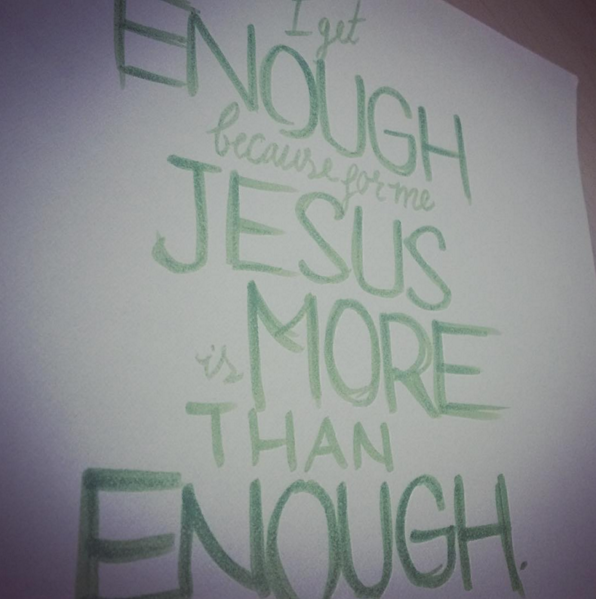 I get
ENOUGH
because for me
JESUS
is MORE
THAN
ENOUGH.